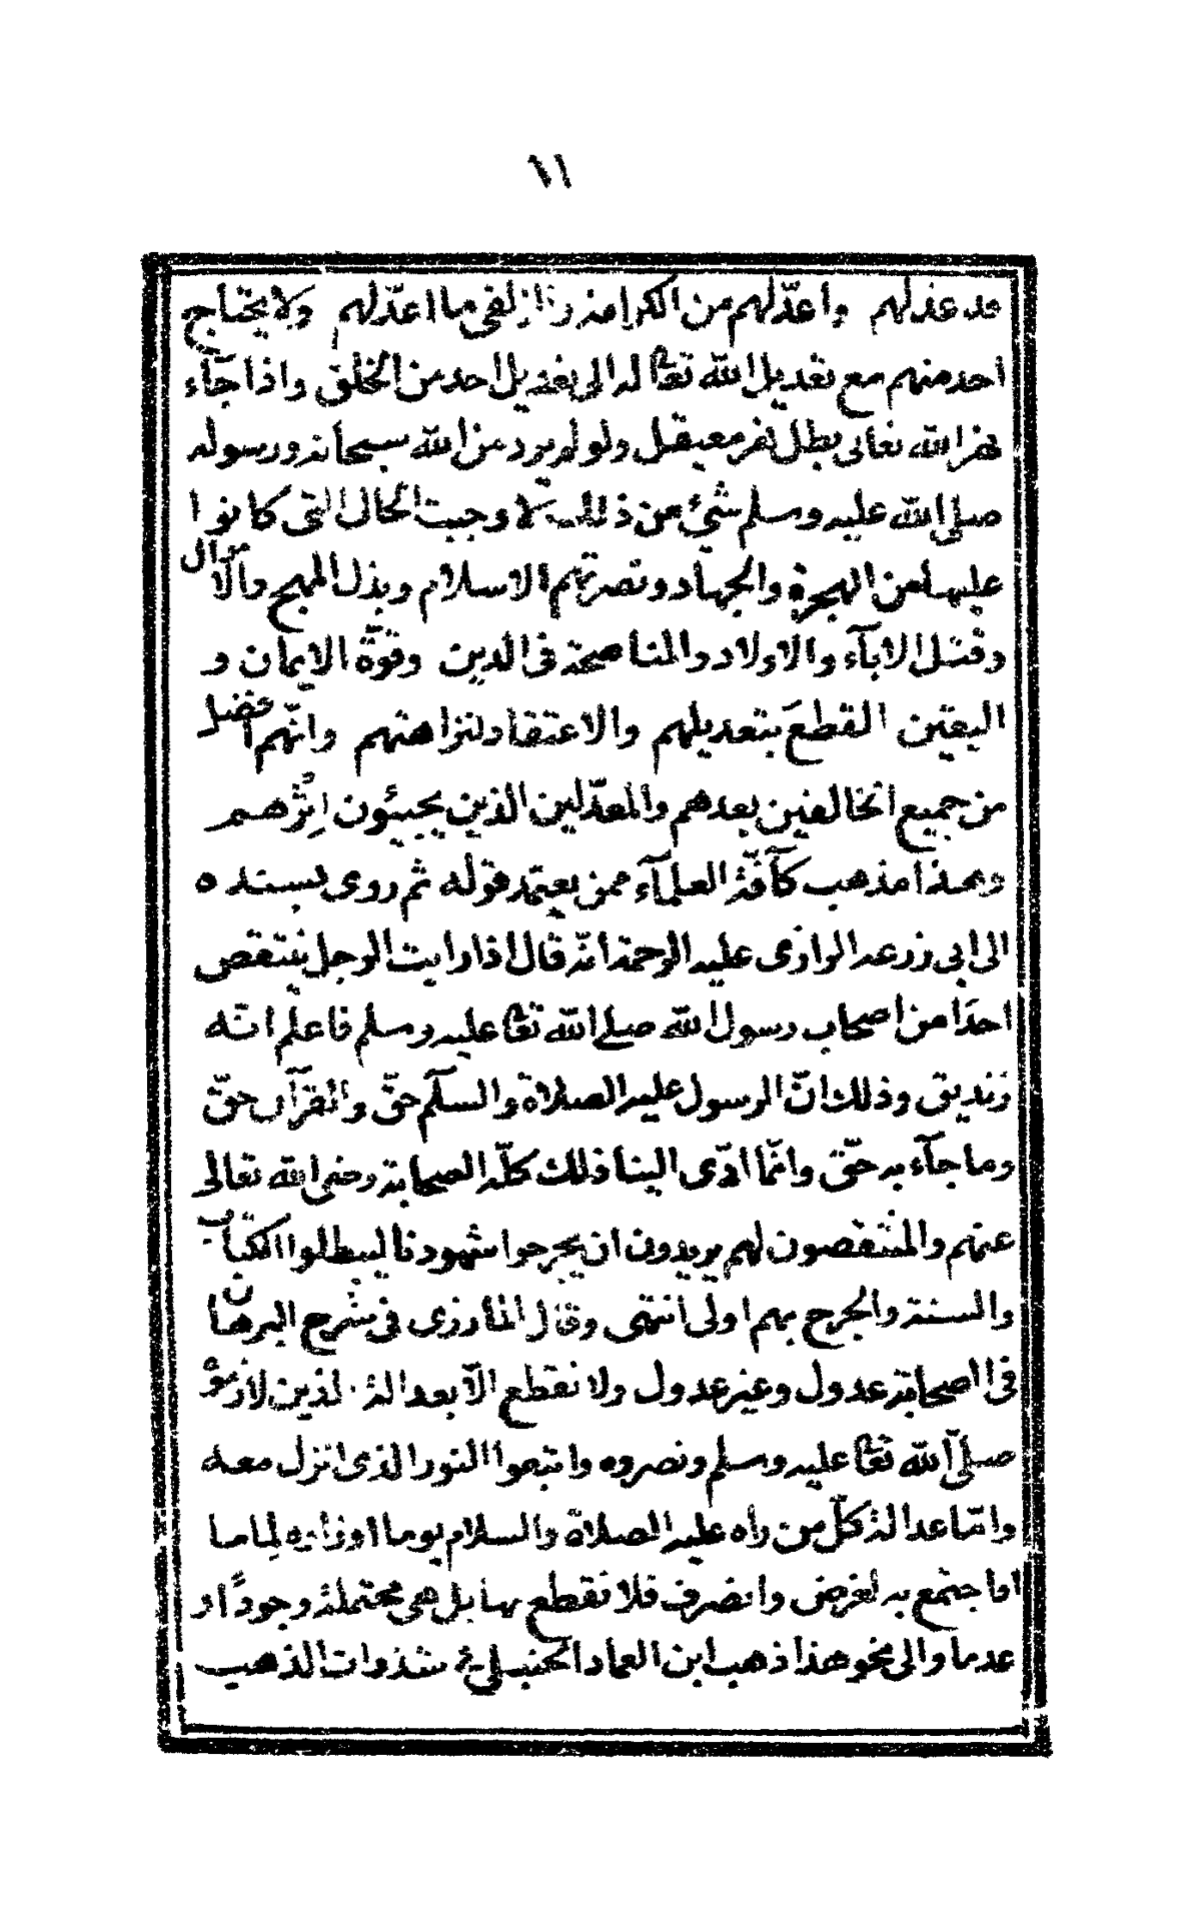 ١١
قد عذلهم واعدّلهم من الكرامة زلفى ما اعدّلهم ولا يحتاج
احد منهم مع تعديل الله تعا له الى تعديل احد من الخلق واذا جآء
نهر الله تعالى بطل نهر معقل ولو لم يرد عن الله سبحانه ورسوله
صلى الله عليه وسلم شئ من ذلك لاوجبت الحال التى كانوا
عليها من الهجرة والجهاد ونصرتهم الاسلام وبذل المهج والاموال
وقتل الابآء والاولاد والمناصحة فى الدين وقوّة الايمان و
اليقين القطعَ بتعديلهم والاعتقاد لنزاهتهم وانّهم افضل
من جميع الخالفين بعدهم والمعدّلين الذين يجيئون اِثْرهم
وهذا مذهب كآفّة العلمآء ممن يعتمد قوله ثم روى بسنده
الى ابى زرعه الرازى عليه الرحمة انّه قال اذا رايت الرجل ينتقص
احدًا من اصحاب رسول الله صلى الله تعا عليه وسلم فاعلم انّه
زنديق وذلك انّ الرسول عليه الصلاة والسلآم حقّ والقرآن حقّ
وما جآء به حقّ وانّما ادّى الينا ذلك كلّه الصحابة رضى الله تعالى
عنهم والمنتقصون لهم يريدون ان يجرحوا شهودنا ليبطلوا الكتاب
والسنة والجرح بهم اولى انتهى وقال المازرى فى شرح البرهان
فى الصحابة عدول وغير عدول ولا نقطع الاّ بعدالة الذين لازموه
صلّى الله تعا عليه وسلم ونصروه واتبعوا النور الذى انزل معه
وامّا عدالة كلّ من راه عليه الصلاة والسلام يوما او زاره لِماما
او اجتمع به لغرض وانصرف فلا نقطع بها بل هى محتملة وجودًا و
عدما والى نحو هذا ذهب ابن العماد الحنبلى فى شذرات الذهب